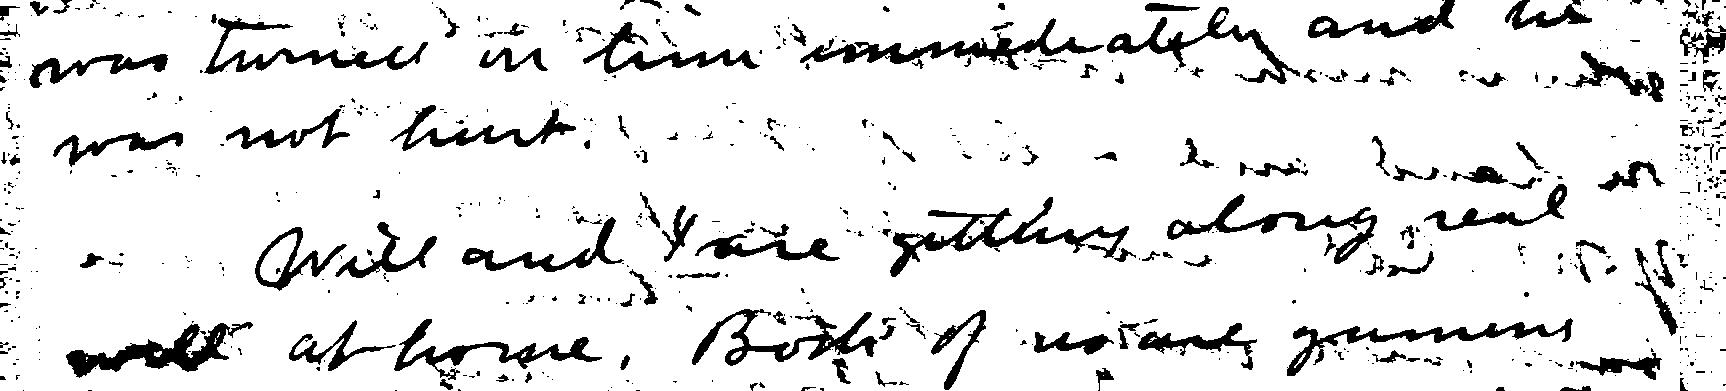 was turned on time immediately and he
was not hurt.
Will and I are getting along real
well at home. Both of us are